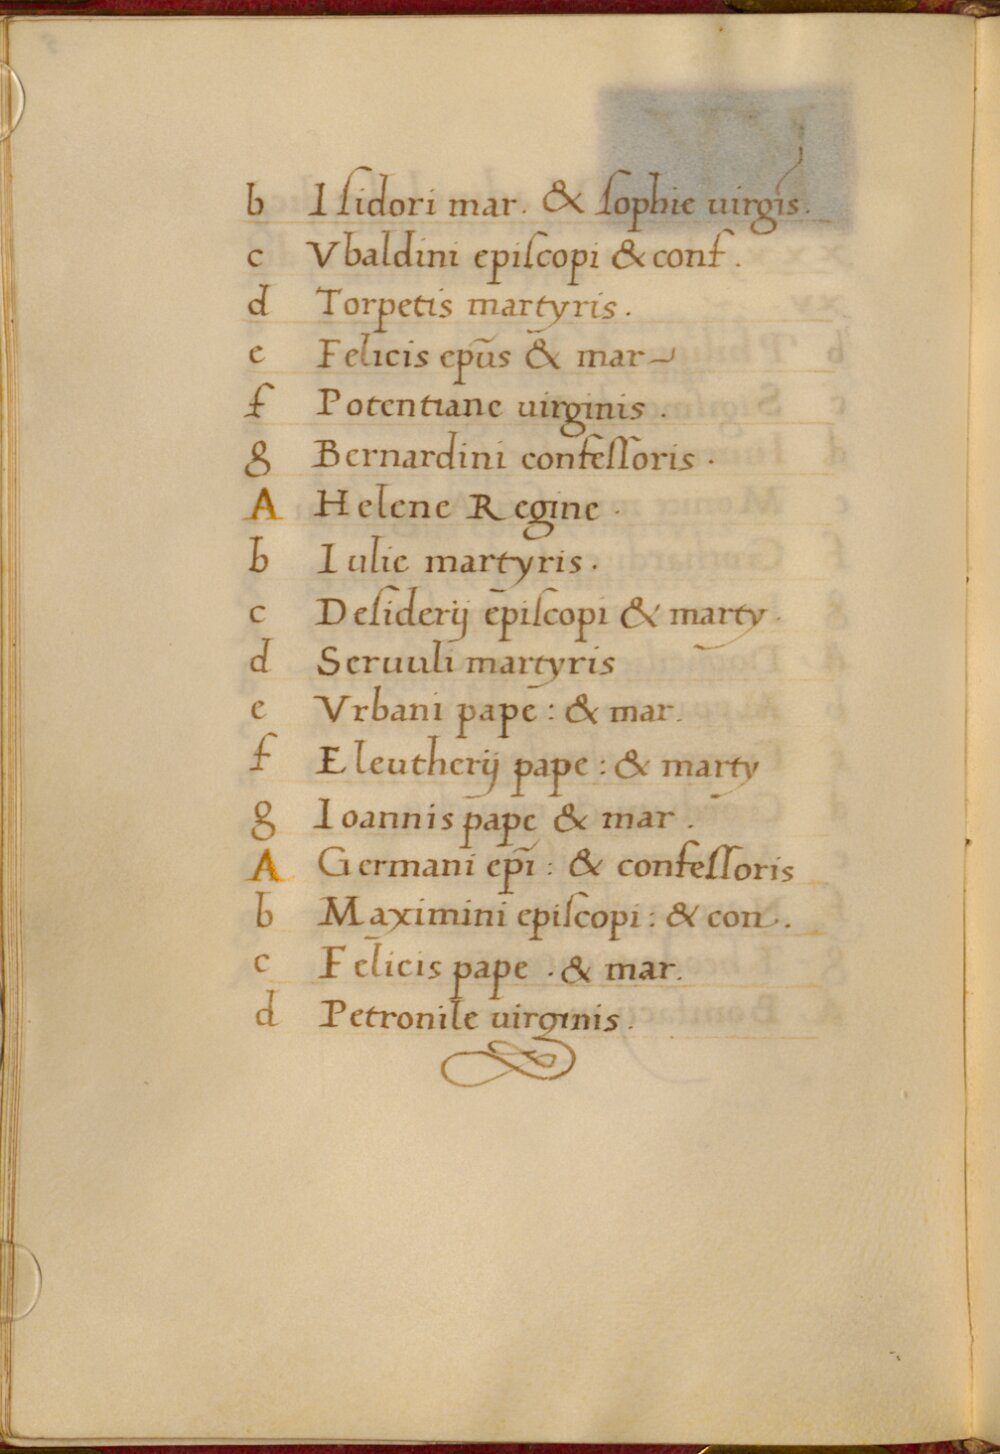 b Isidori mar. & sophie uirgis.
c Vbaldini episcopi & conf.
d Torpetis martyris.
e Felicis epūs & mar
f Potentiane uirginis.
g Bernardini confessoris.
A Helene Regine.
b Iulie martyris.
c Desiderij episcopi & marty.
d Seruuli martyris
e Vrbani pape: & mar.
f Eleutherij pape: & marty
g Ioannis pape & mar.
A Germani epī: & confessoris
b Maximini episcopi: & con.
c Felicis pape. & mar.
d Petronile uirginis.